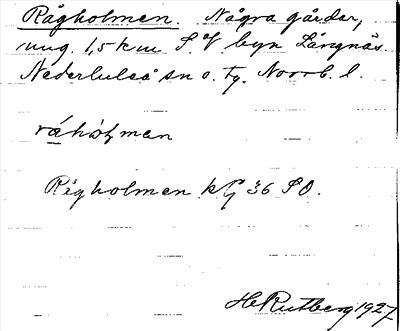 Rågholmen. Några gårdar,
ung. 1,5 km S. of byn Långnäs.
Nederluleå sn o. tg. Norrb. l.
råhoļmen
Rågholmen kG 36 SO.
H Rutberg 1927